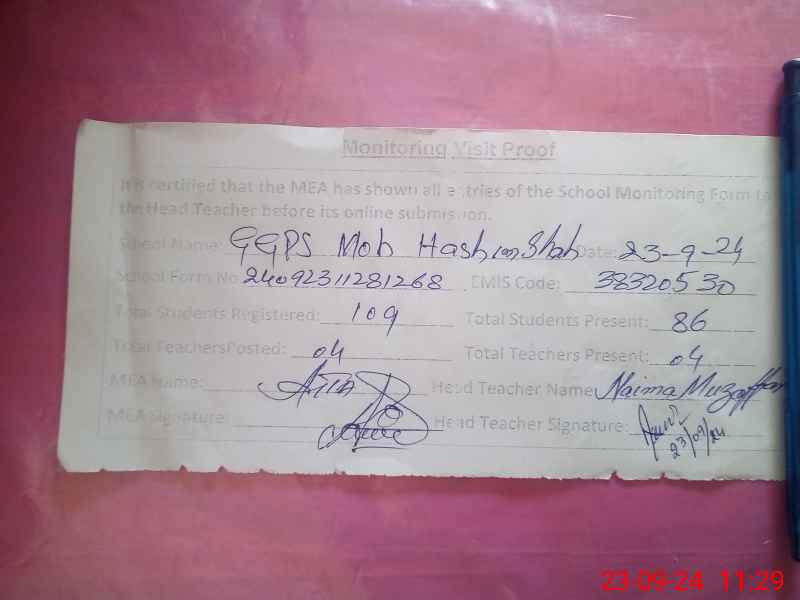 Monitoring Visit Proof
It is certified that the MEA has shown all entries of the School Monitoring Form to
the Head Teacher before its online submission.
School Name: GGPS Moh Hashim Shah Date: 23-9-24
School Form No: 24092311281268 EMIS Code: 38320530
Total Students Registered: 109 Total Students Present: 86
Total TeachersPosted: 04 Total Teachers Present: 04
MEA Name: Head Teacher Name: Naima Muzaffar
MEA Signature: Head Teacher Signature:
23/09/24
23-09-24 11:29